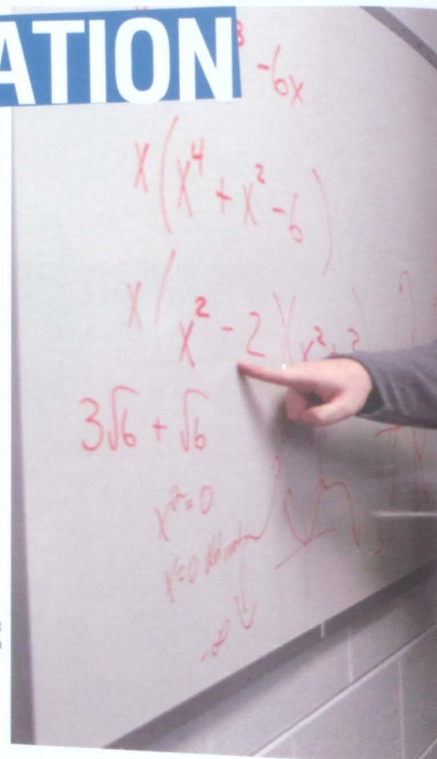 ATION
3 -6x
x(x⁴ + x² - 6)
x(x² - 2)(x² + 3)
3√6 + √6
x² = 0
x = 0
-∞